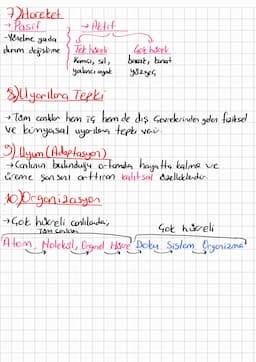 7) Hareket
→ Pasif → Aktif
-Yönelme ya da Tek hücreli Çok hücreli
durum değiştirme Kamçı, sil, bacak, kanat
yalancı ayak yüzgeç
8) Uyarılara Tepki
→ Tüm canlılar hem iç hem de dış çevrelerinden gelen fiziksel
ve kimyasal uyarılara tepki verir
9) Uyum (Adaptasyon)
→ Canlının bulunduğu ortamda hayatta kalma ve
üreme şansını arttıran kalıtsal özelliklerdir
10) Organizasyon
→ Çok hücreli canlılarda,
Tüm canlılar Çok hücreli
Atom, Molekül, Organel Hücre Doku Sistem Organizma